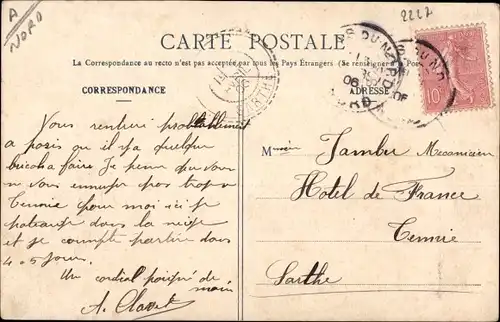 A
NORD
2227
CARTE POSTALE
La Correspondance au recto n'est pas acceptée par tous les Pays Étrangers (Se renseigner à la Poste)
CORRESPONDANCE
ADRESSE
Vous rentrer probablement
a paris ou il y a quelque
bricol a faire Je pense que vous
ne vous ennuyer pas trop a
Tennie pour moi ici je
patauge dans la neige
et je compte partir dans
4 ou 5 jours.
Un cordial poigné de
main
A.
M Tambu Mecanicien
Hotel de France
Tennie
Sarthe
10